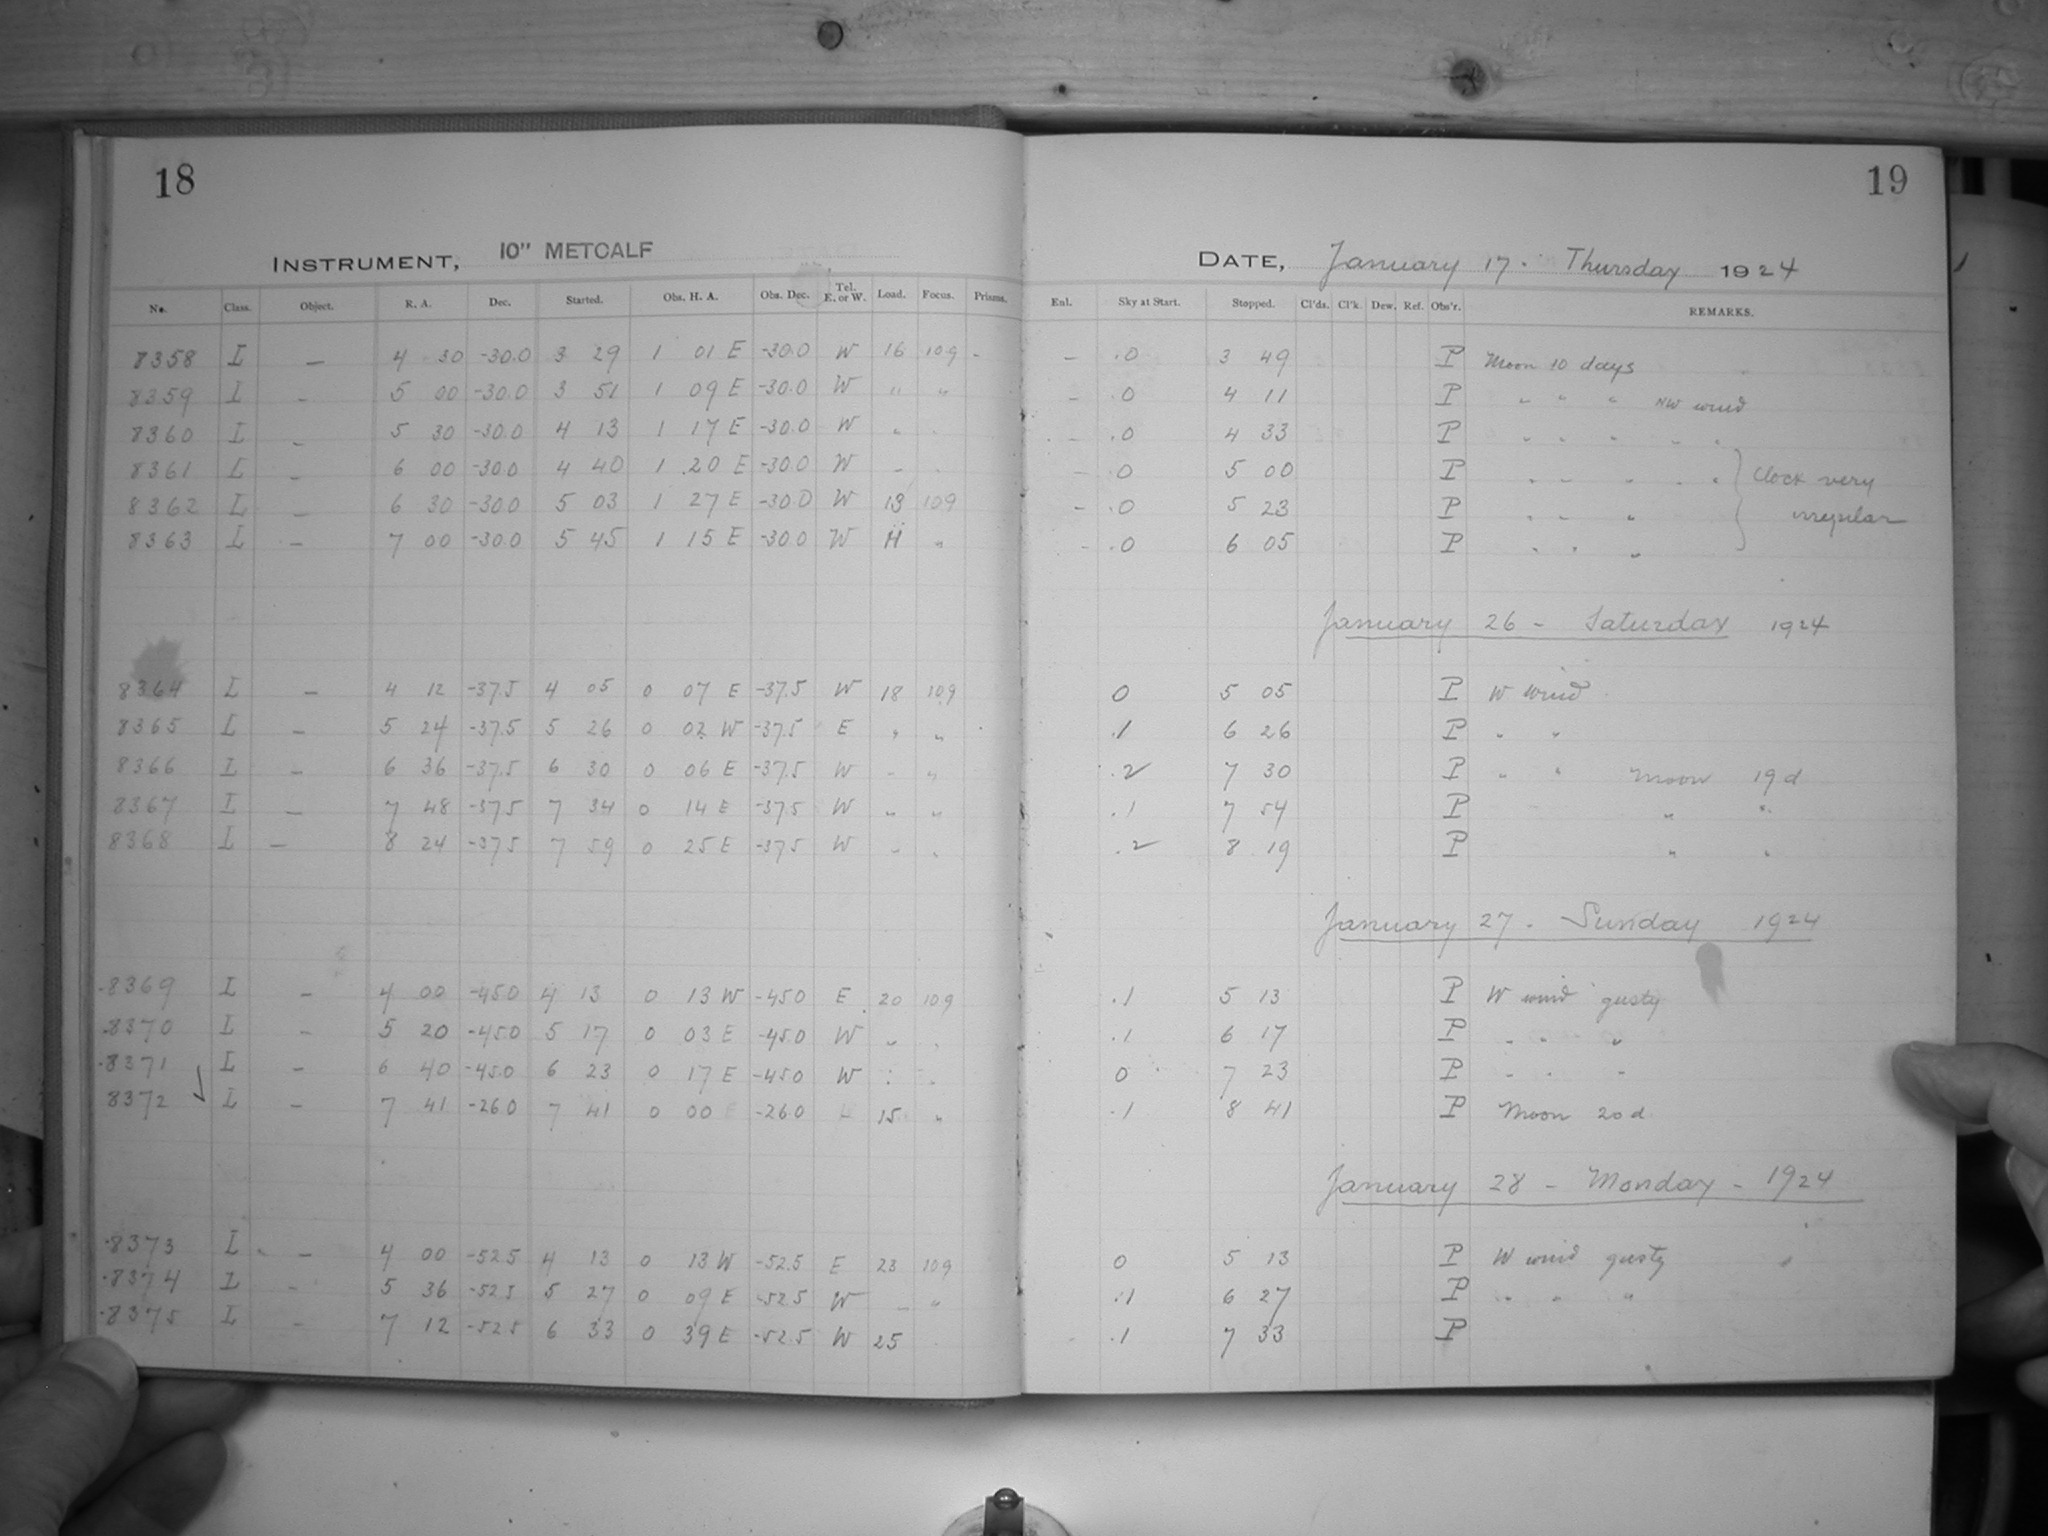 18
19
INSTRUMENT, 10" METCALF
DATE, January 17. Thursday 1924
No. Class. Object. R. A. Dec. Started. Obs. H. A. Obs. Dec. Tel. E. or W. Load. Focus. Prisms. Enl. Sky at Start. Stopped. Cl'ds. Cl'k. Dew. Ref. Obs'r. REMARKS.
8358 I — 4 30 -30.0 3 29 1 01 E -30.0 W 16 109 - – .0 3 49 P Moon 10 days
8359 I - 5 00 -30.0 3 51 1 09 E -30.0 W " " – .0 4 11 P " " " NW wind
8360 I - 5 30 -30.0 4 13 1 17 E -30.0 W " " – .0 4 33 P " " " " "
8361 I - 6 00 -30.0 4 40 1 20 E -30.0 W " " – .0 5 00 P " " " " " } Clock very
8362 I - 6 30 -30.0 5 03 1 27 E -30.0 W 18 109 – .0 5 23 P " " " irregular
8363 I - 7 00 -30.0 5 45 1 15 E -30.0 W " " - .0 6 05 P " " "
January 26 - Saturday 1924
8364 I — 4 12 -37.5 4 05 0 07 E -37.5 W 18 109 0 5 05 P W wind
8365 I — 5 24 -37.5 5 26 0 02 W -37.5 E " " .1 6 26 P " "
8366 I — 6 36 -37.5 6 30 0 06 E -37.5 W " " .2 7 30 P " " Moon 19 d
8367 I — 7 48 -37.5 7 34 0 14 E -37.5 W " " .1 7 54 P " "
8368 I — 8 24 -37.5 7 59 0 25 E -37.5 W " " .2 8 19 P " "
January 27. Sunday 1924
8369 I - 4 00 -45.0 4 13 0 13 W -45.0 E 20 109 .1 5 13 P W wind gusty
8370 I - 5 20 -45.0 5 17 0 03 E -45.0 W " " .1 6 17 P " " "
8371 I - 6 40 -45.0 6 23 0 17 E -45.0 W " " 0 7 23 P " " "
8372 I - 7 41 -26.0 7 41 0 00 -26.0 15 " .1 8 41 P Moon 20 d.
January 28 - Monday - 1924
8373 I - 4 00 -52.5 4 13 0 13 W -52.5 E 23 109 0 5 13 P W wind gusty
8374 I - 5 36 -52.5 5 27 0 09 E -52.5 W " " .1 6 27 P " " "
8375 I - 7 12 -52.5 6 33 0 39 E -52.5 W 25 .1 7 33 P